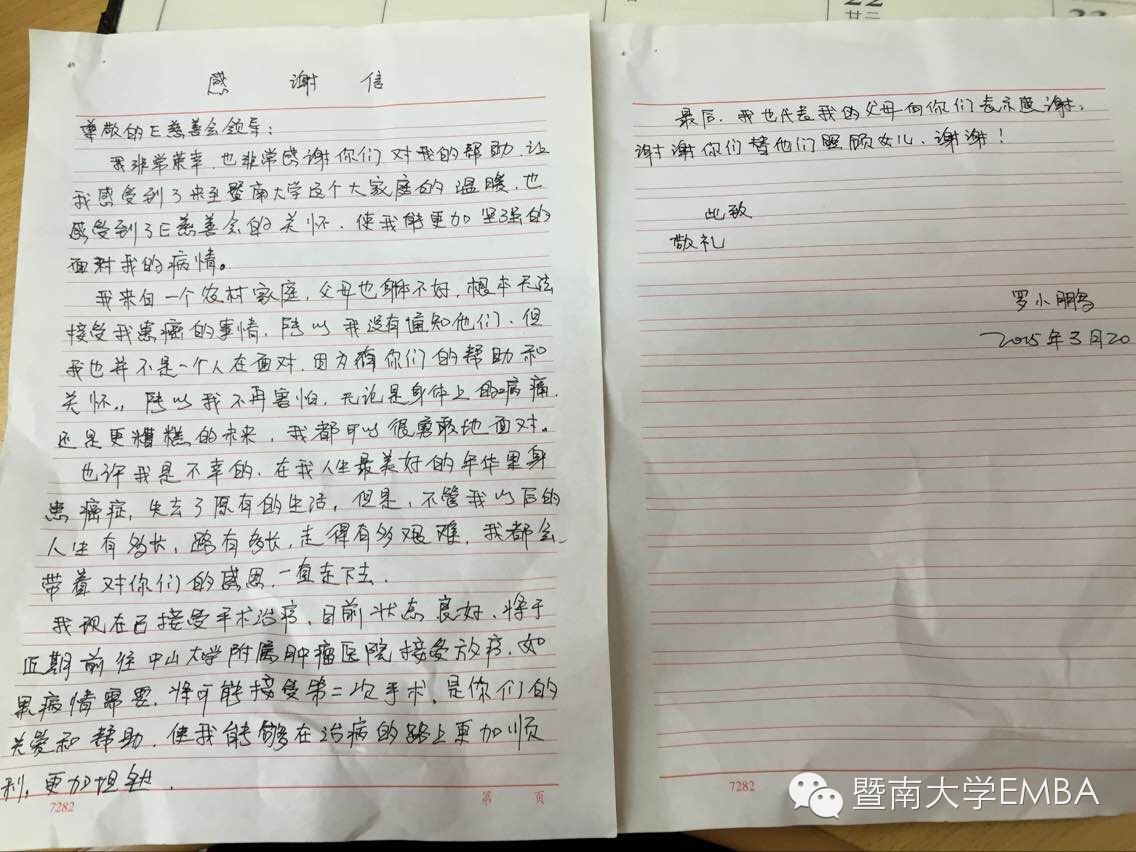 感谢信
尊敬的E慈善会领导：
我非常荣幸，也非常感谢你们对我的帮助，让
我感受到了来至暨南大学这个大家庭的温暖，也
感受到了E慈善会的关怀，使我能更加坚强的
面对我的病情。
我来自一个农村家庭，父母也身体不好，根本无法
接受我患癌的事情，所以我没有通知他们，但
我也并不是一个人在面对，因为有你们的帮助和
关怀，所以我不再害怕，无论是身体上的病痛，
还是更糟糕的未来，我都可以很勇敢地面对。
也许我是不幸的，在我人生最美好的年华里身
患癌症，失去了原有的生活，但是，不管我以后的
人生有多长，路有多长，走得有多艰难，我都会
带着对你们的感恩，一直走下去．
我现在已接受手术治疗，目前状态良好，将于
近期前往中山大学附属肿瘤医院接受放疗，如
果病情需要，将可能接受第二次手术，是你们的
关爱和帮助，使我能够在治病的路上更加顺
利，更加坦然．
7282
第 页
22
廿三
23
最后，我也代表我的父母向你们表示感谢，
谢谢你们替他们照顾女儿，谢谢！
此致
敬礼
罗小鹏
2015年3月20
7282
暨南大学EMBA